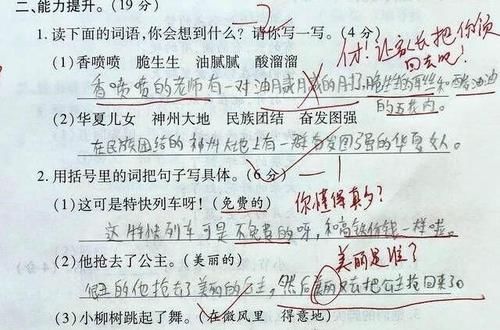 二、能力提升。(19分)
1.读下面的词语,你会想到什么?请你写一写。(4分)
(1)香喷喷 脆生生 油腻腻 酸溜溜
香喷喷的老师有一对
(2)华夏儿女 神州大地 民族团结 奋发图强
在民族团结的神州大地上有一群奋发图强的华夏女人。
2.用括号里的词把句子写具体。(6分)
你懂得真多?
(1)这可是特快列车呀!(免费的)
这特快列车可是不免费的呀,和高铁价钱一样啦。
美丽是谁?
(2)他抢去了公主。(美丽的)
的他抢去了美丽的公主,然后 又去把公主抢回来了。
(3)小柳树跳起了舞。(在微风里 得意地)